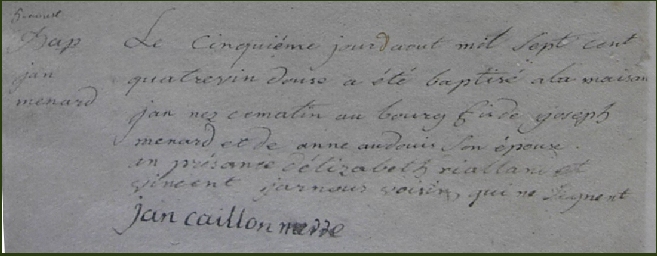 5 aoust
Bap
jan
menard
Le cinquiéme jour daout mil sept cent
quatrevin douse a été baptisé a la maison
jan nez cematin au bourg fis de joseph
menard et de anne audouis son époux
en présance délizabeth riallan et
vincent jarnoux voisin, qui ne signent
jan caillon